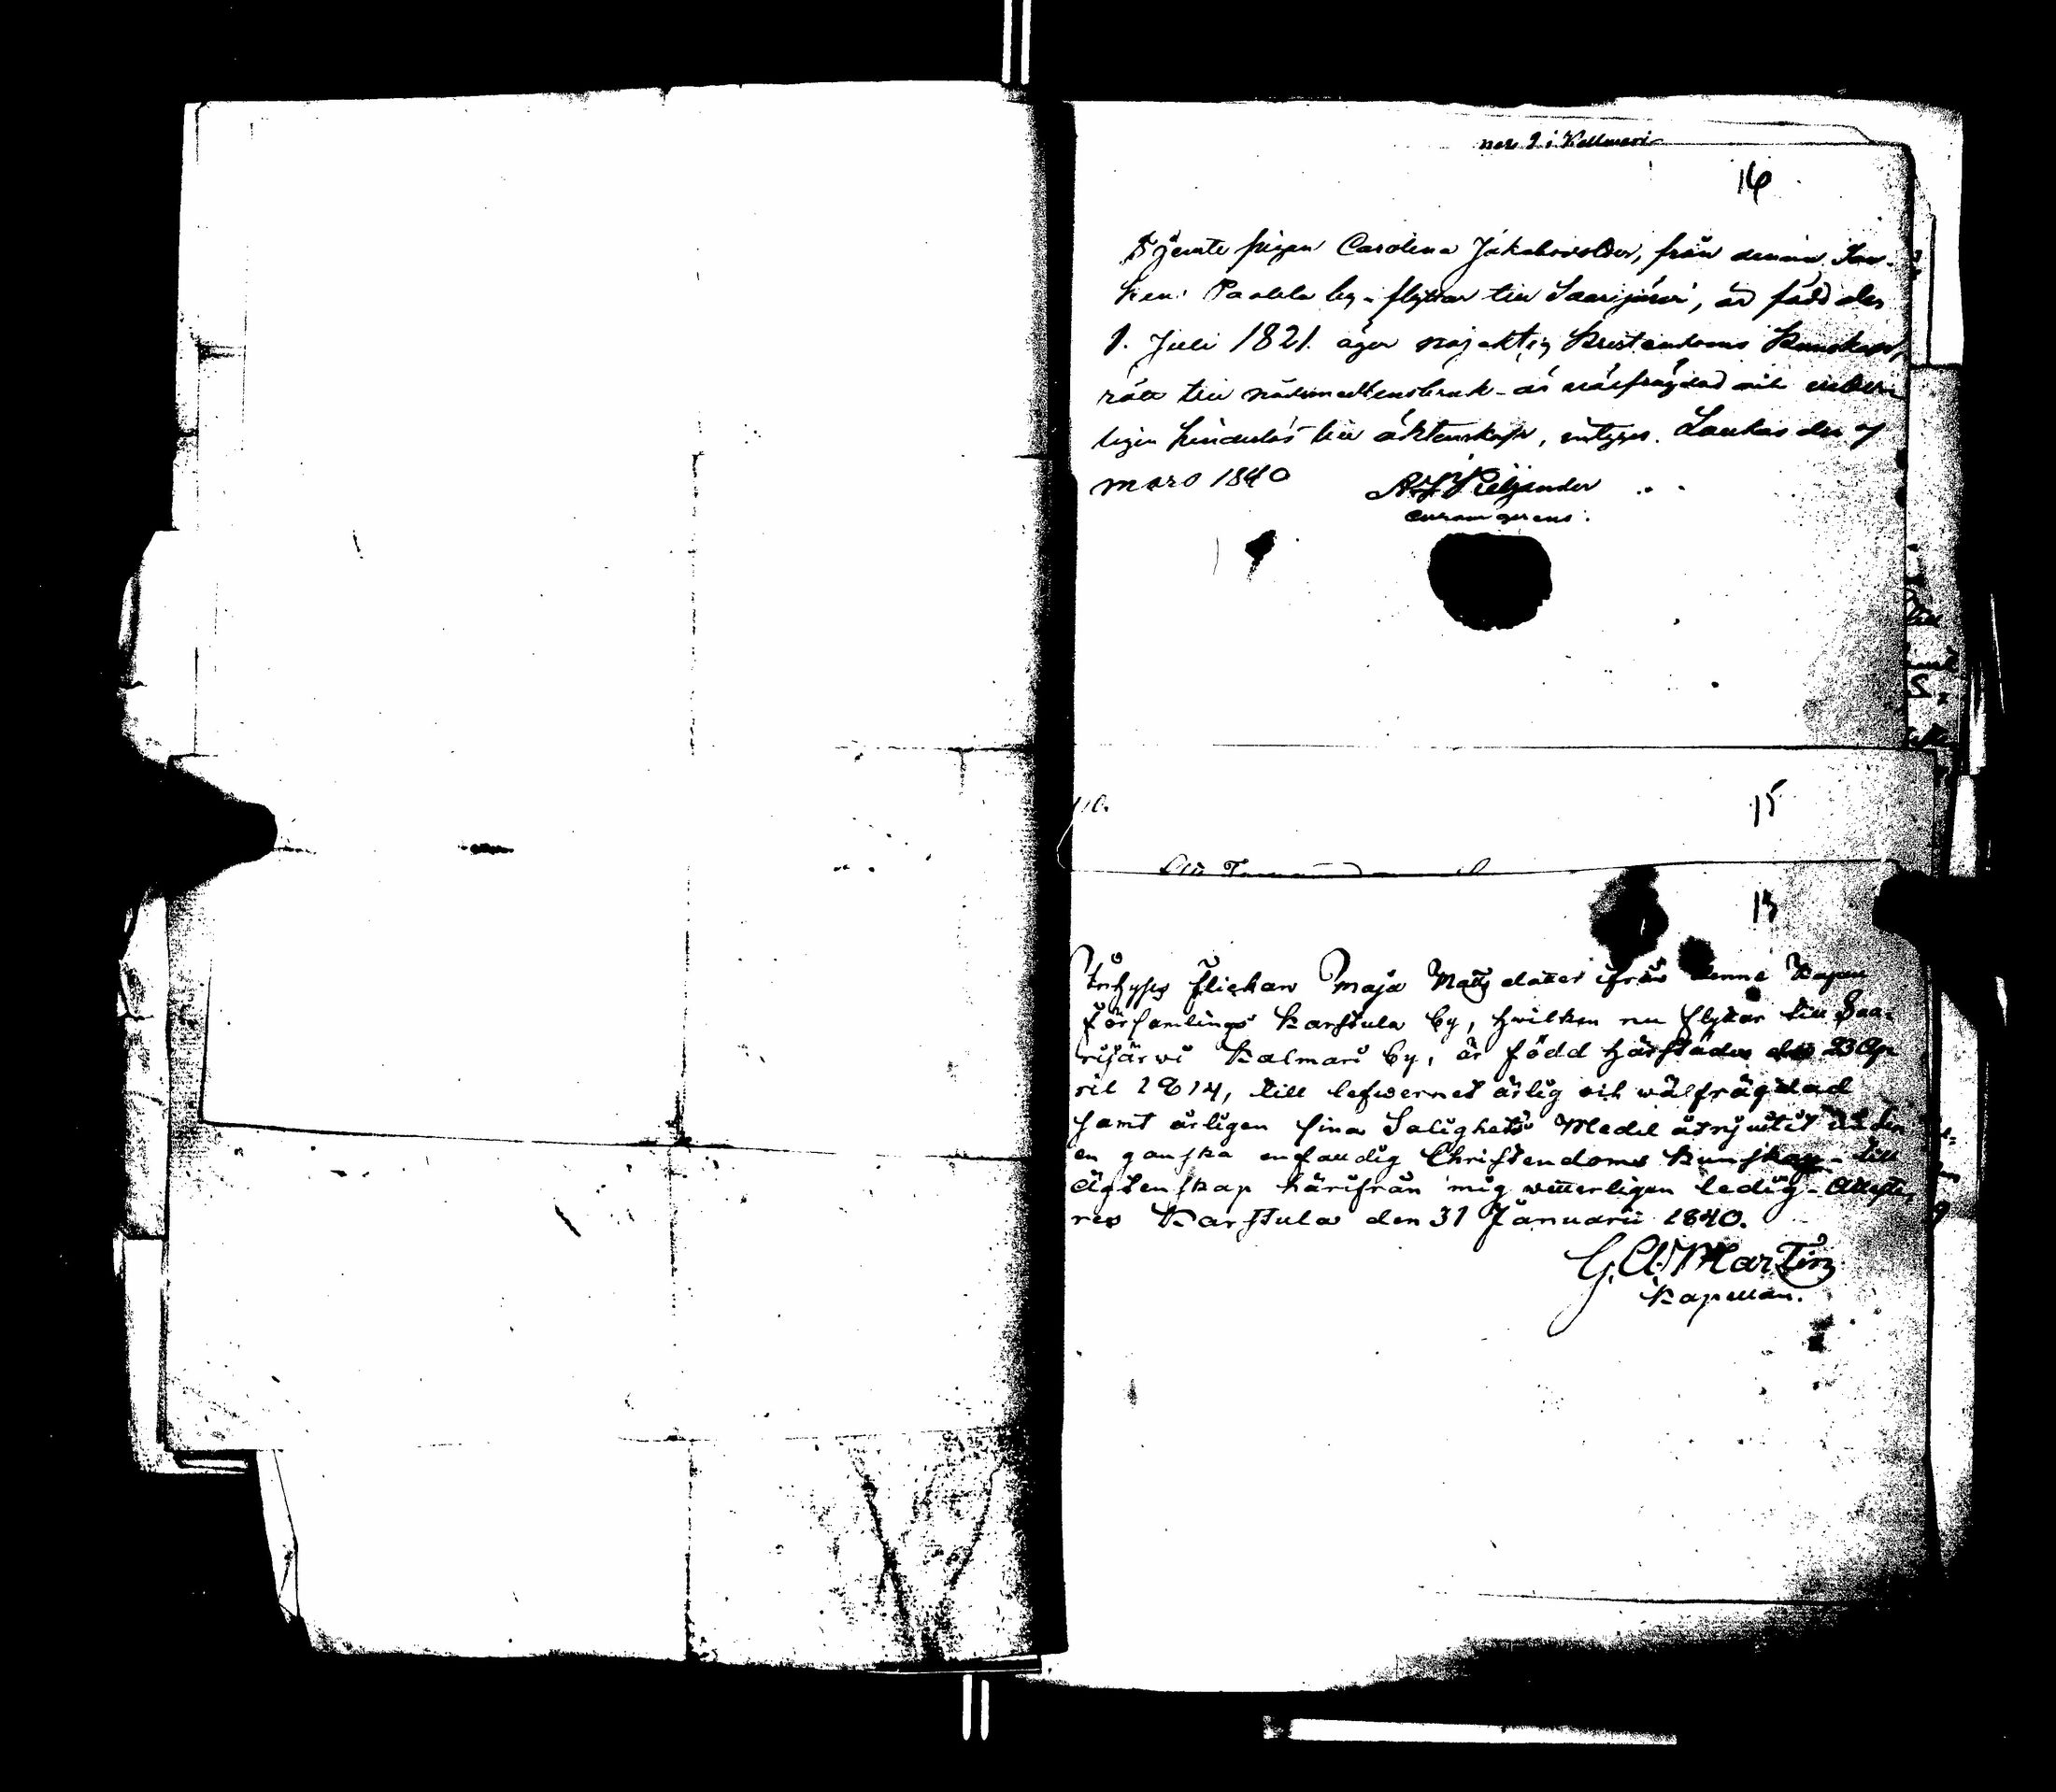 no 2 i Kallmari
16
Tjenste pigan Carolina Jakobsdotter, från denna Soc-
ken Paalala by - flyttar till Saarijärvi, är född den
1. Juli 1821. äger nöjaktig Kristendoms Kunskap,
rätt till nådemedlens bruk - är välfrägdad och veter-
ligen hinderlös till äktenskap, intygas. Laukas den 7
mars 1840
Kiljander
curam gerens.
15
13
Intygas flickan Maja Mattsdotter ifrån denne Kapell
församlings Karstula by, hvilken nu flyttar till Saa-
rijärvi Kalmari by, är född härstädes den 23 Ap-
ril 1814, till lefwernet ärlig och wälfrägdad
samt årligen sina Salighets Medel åtnjutit
en ganska enfaldig Christendoms kunskap - till
Ägtenskap härifrån mig wetterligen ledig - Atteste-
res Karstula den 31 Januarii 1840.
G. A. Martin
Kapellan.